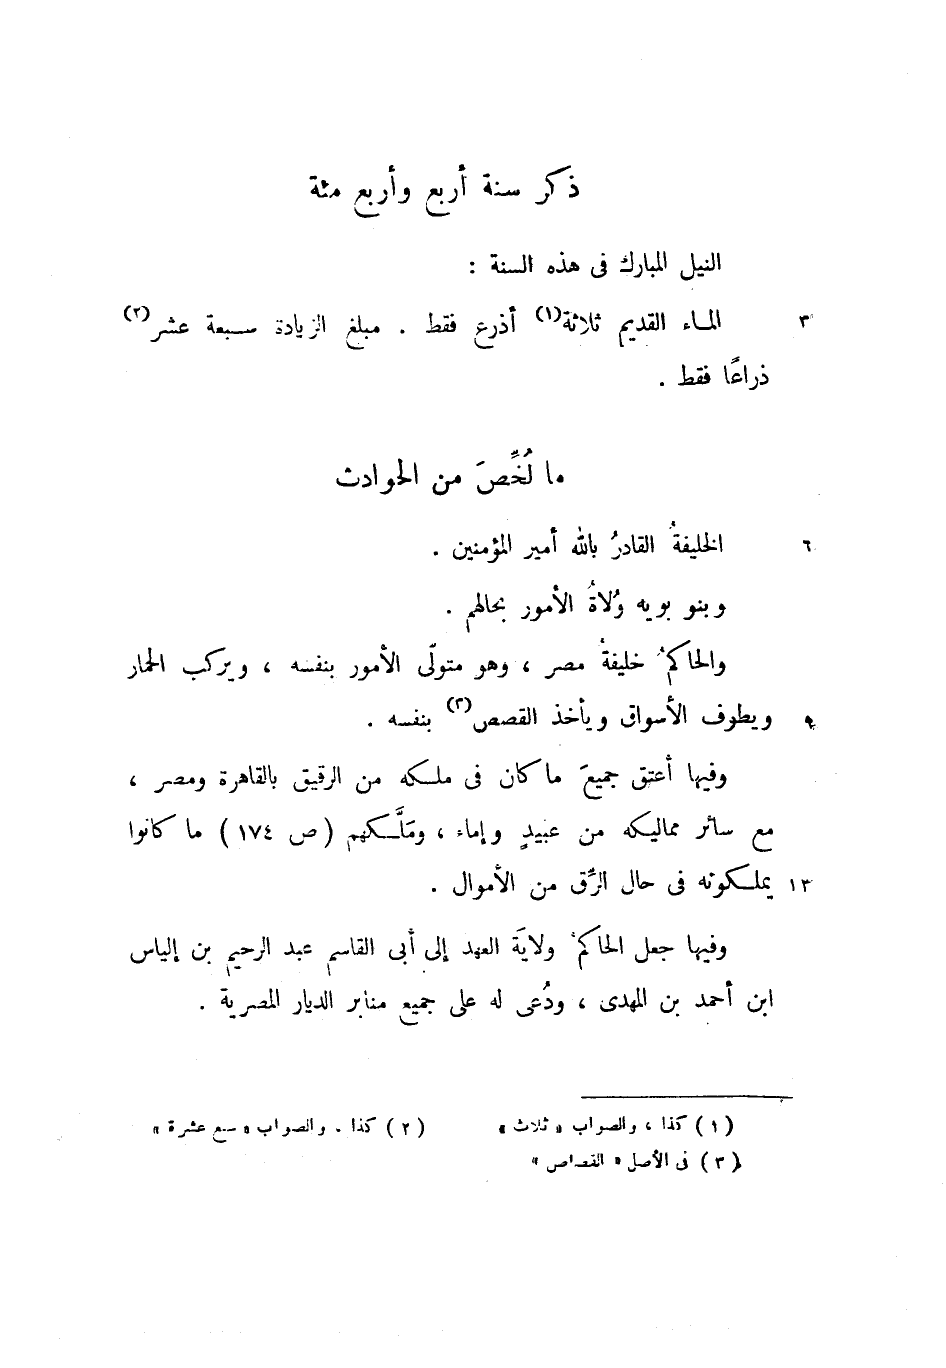 ذكر سنة أربع وأربع مئة
النيل المبارك فى هذه السنة :
٣ الماء القديم ثلاثة(١) أذرع فقط . مبلغ الزيادة سبعة عشر(٢)
ذراعًا فقط .
ما لُخِّصَ من الحوادث
٦ الخليفةُ القادرُ بالله أمير المؤمنين .
وبنو بويه وُلاةُ الأمور بحالهم .
والحاكمُ خليفةُ مصر ، وهو متولّى الأمور بنفسه ، ويركب الحمار
٩ ويطوف الأسواق ويأخذ القصص(٣) بنفسه .
وفيها أعتق جميعَ ما كان فى ملكه من الرقيق بالقاهرة ومصر ،
مع سائر مماليكه من عبيدٍ وإماء ، ومَلَّكهم (ص ١٧٤) ما كانوا
١٢ يملكونه فى حال الرِّق من الأموال .
وفيها جعل الحاكمُ ولايَة العهد إلى أبى القاسم عبد الرحيم بن إلياس
ابن أحمد بن المهدى ، ودُعى له على جميع منابر الديار المصرية .
(١) كذا ، والصواب « ثلاث » (٢) كذا . والصواب « سبع عشرة »
(٣) فى الأصل « القصاص »